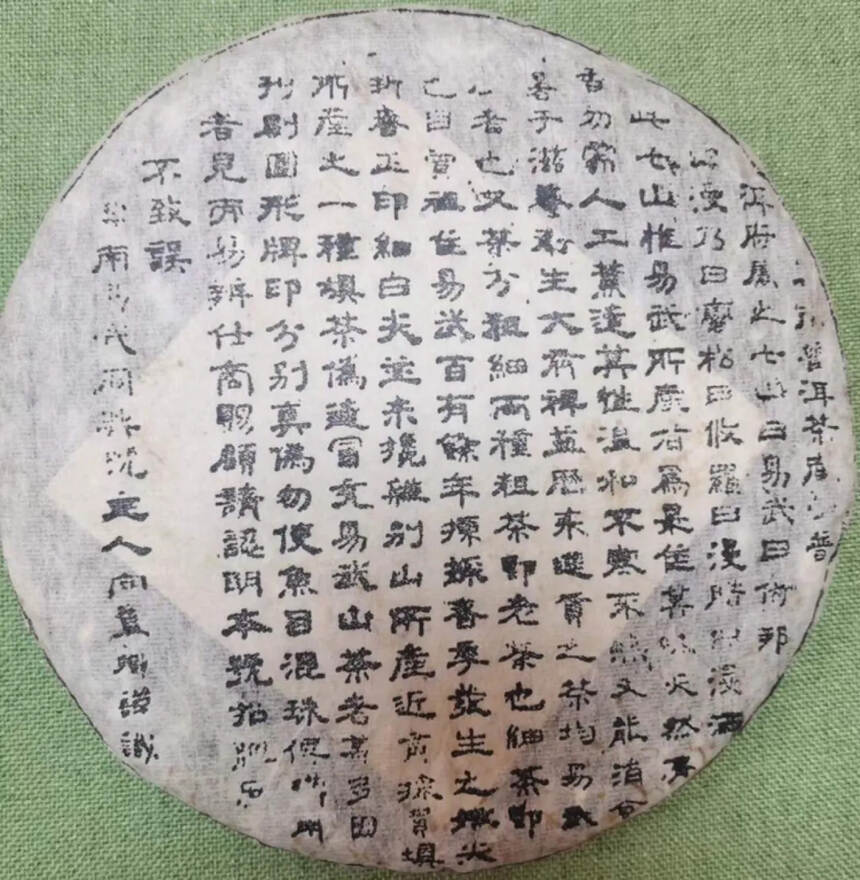 普洱茶產普
洱府屬之七山曰易武曰倚邦
曰漫乃曰蠻松曰攸羅曰漫腊曰漫洒
此七山惟易武所產者爲最佳其味天然馨
香勿需人工薰造其性溫和不寒不燥又能消食
暑于滋養衛生大有裨益歷來進貢之茶均易武
山者也又茶分粗細兩種粗茶即老茶也細茶即
己自賣祖住易武百有餘年採春季發生之嫩尖
新春正印細白尖並未攙雜別山所產近有採買填
所產之一種填茶偽造冒充易武山茶者甚多因
刊刷圓形牌印分別真偽勿使魚目混珠俾用
者見而易辨仕商賜顧請認明本號招牌庶
不致誤
雲南易武同興號主人向質卿謹識